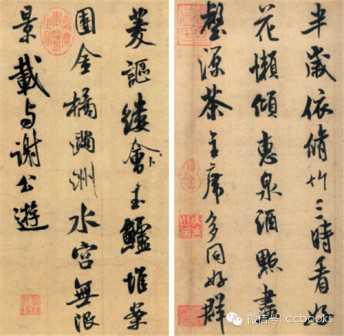 半歲依脩竹三時看好
花懶傾惠泉酒點盡
壑源茶主席多同好群
菱謳縷會玉鱸堆案
團金橘滿洲水宮無限
景載与謝公遊
微信号: ccbooks